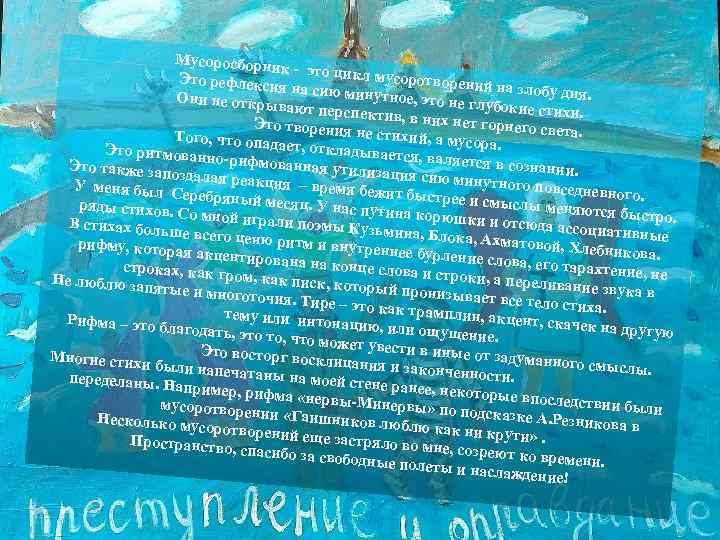 Мусоросборник - это цикл мусоротворений на злобу дня.
Это рефлексия на сию минутное, это не глубокие стихи.
Они не открывают перспектив, в них нет горнего света.
Это творения не стихий, а мусора.
Того, что опадает, откладывается, валяется в сознании.
Это ритмованно-рифмованная утилизация сию минутного повседневного.
Это также запоздалая реакция – время бежит быстрее и смыслы меняются быстро.
У меня был Серебряный месяц. У нас путина корюшки и отсюда ассоциативные
ряды стихов. Со мной играли поэмы Кузьмина, Блока, Ахматовой, Хлебникова.
В стихах больше всего ценю ритм и внутреннее бурление слова, его тарахтение, не
рифму, которая акцентирована на конце слова и строки, а переливание звука в
строках, как гром, как писк, который пронизывает все тело стиха.
Не люблю запятые и многоточия. Тире – это как трамплин, акцент, скачек на другую
тему или интонацию, или ощущение.
Рифма – это благодать, это то, что может увести в иные от задуманного смыслы.
Это восторг восклицания и законченности.
Многие стихи были напечатаны на моей стене ранее, некоторые впоследствии были
переделаны. Например, рифма «нервы-Минервы» по подсказке А. Резникова в
мусоротворении «Гаишников люблю как ни крути» .
Несколько мусоротворений еще застряло во мне, созреют ко времени.
Пространство, спасибо за свободные полеты и наслаждение!
преступление и оправдание